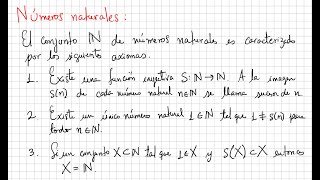 Números naturales:
El conjunto ℕ de números naturales es caracterizado
por los siguientes axiomas.
1. Existe una función inyectiva S: ℕ → ℕ. A la imagen
S(n) de cada número natural n∈ℕ se llama sucesor de n.
2. Existe un único número natural 1∈ℕ tal que 1 ≠ s(n) para
todo n∈ℕ.
3. Si un conjunto X⊂ℕ tal que 1∈X y S(X)⊂X entonces
X = ℕ.